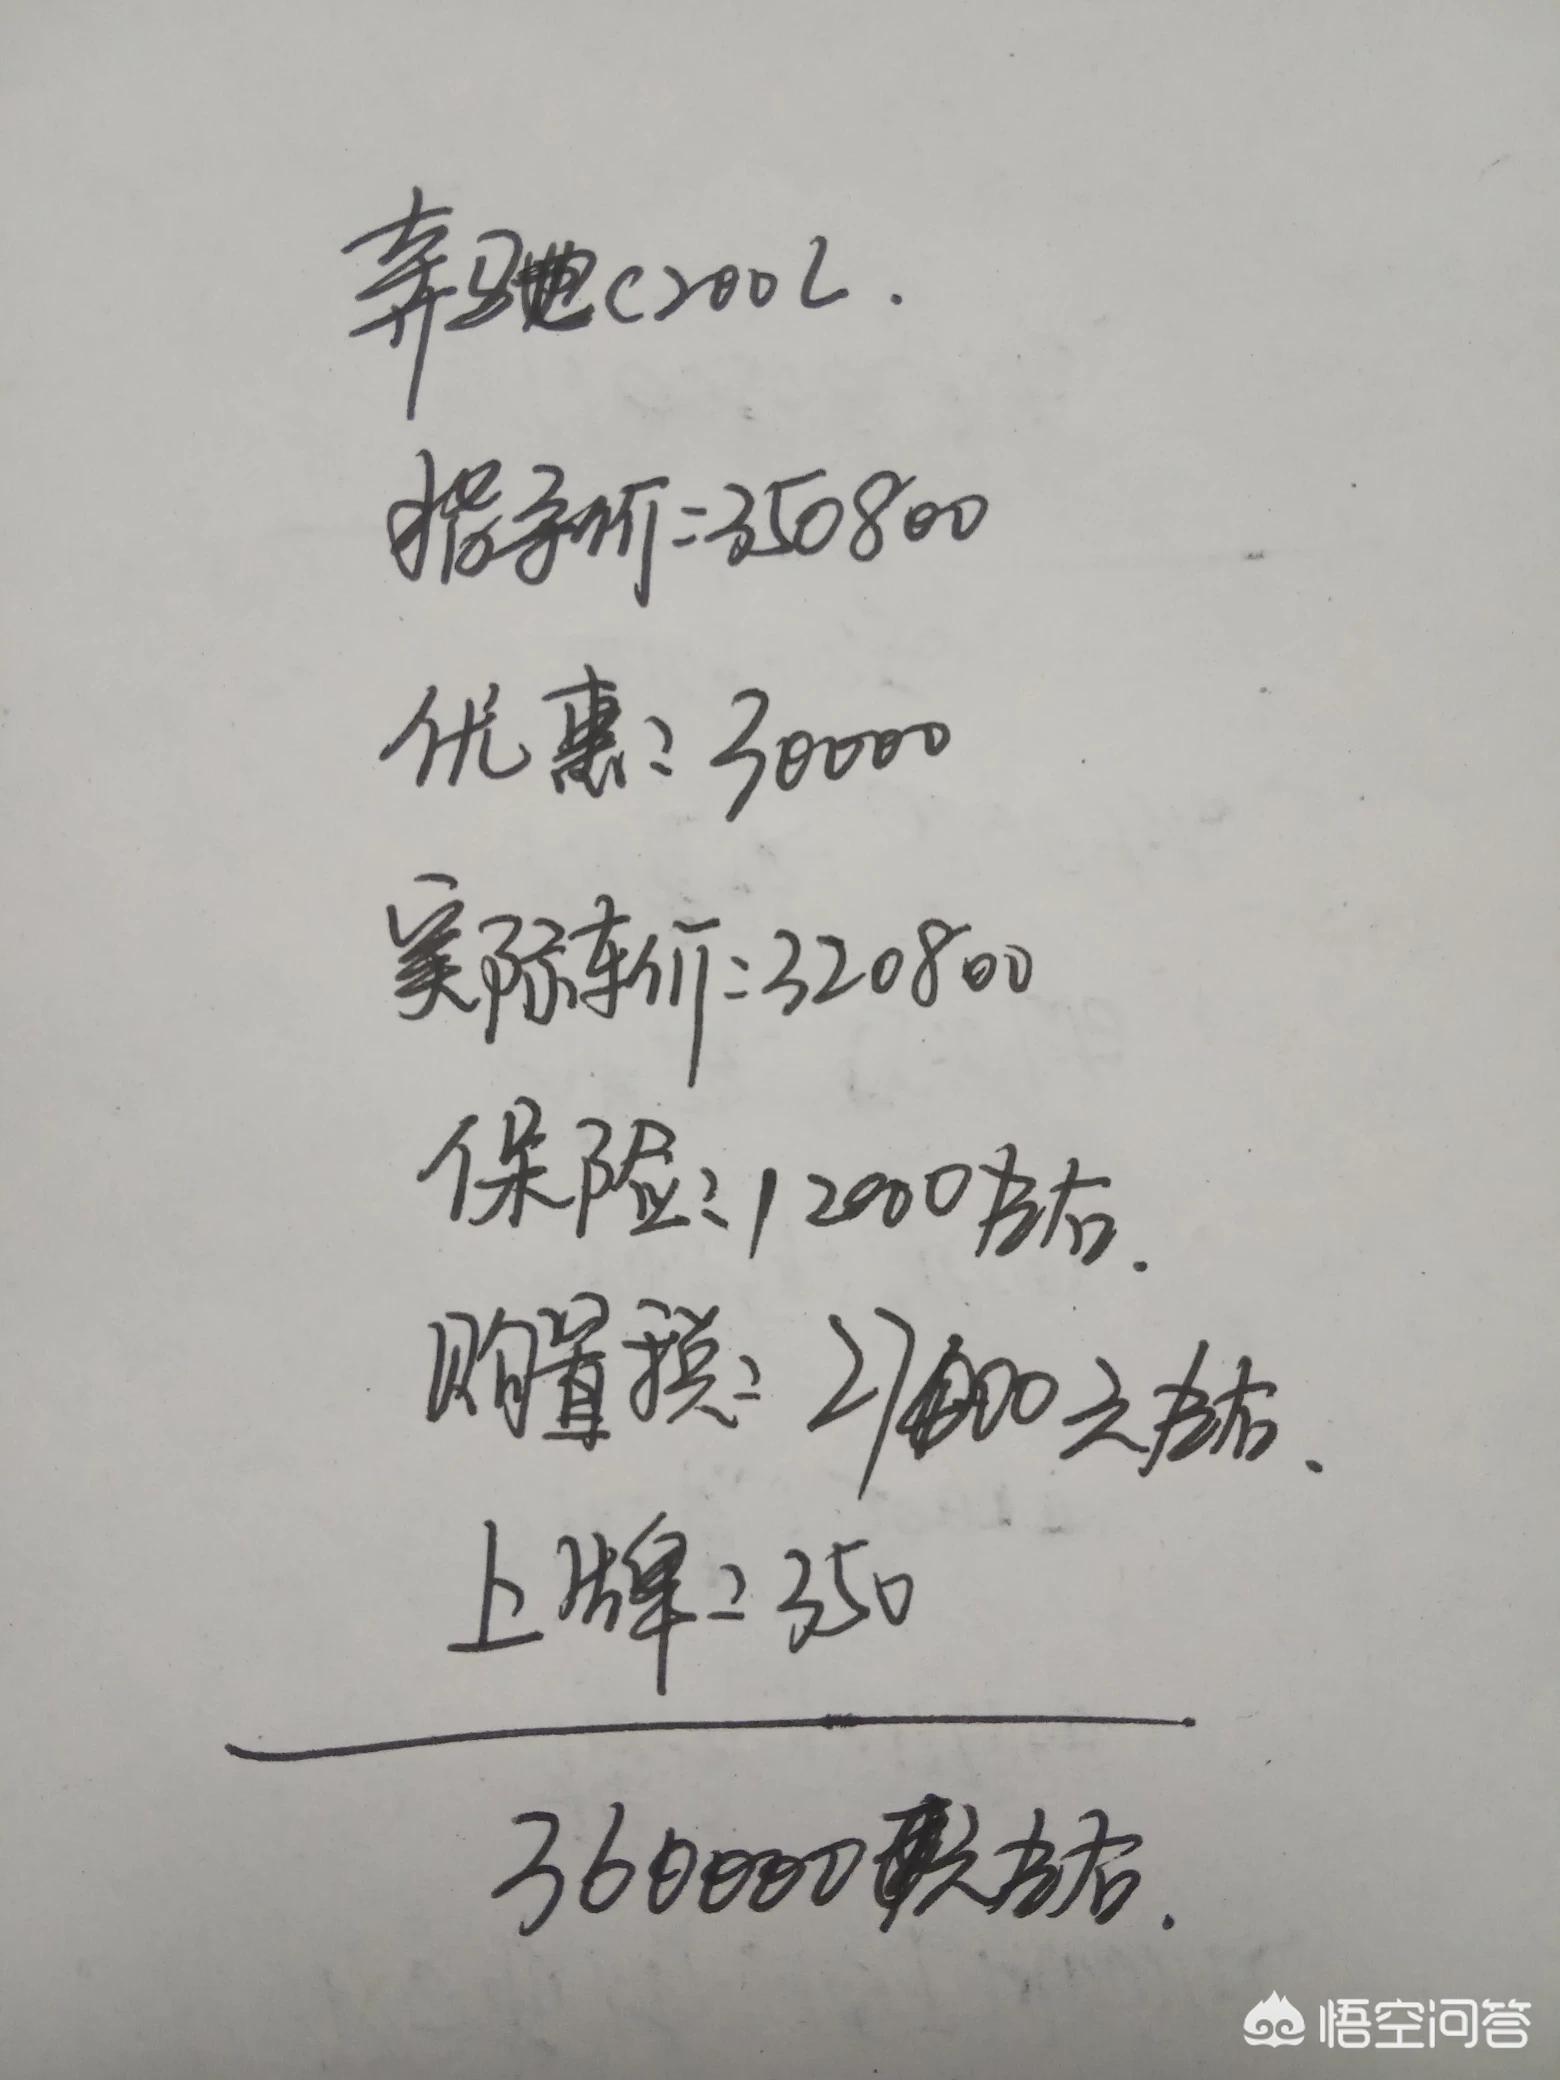 奔驰C200L.
指导价=350800
优惠=30000
实际车价=320800
保险=12000左右.
购置税=27000元左右.
上牌=350
360000左右.
悟空问答